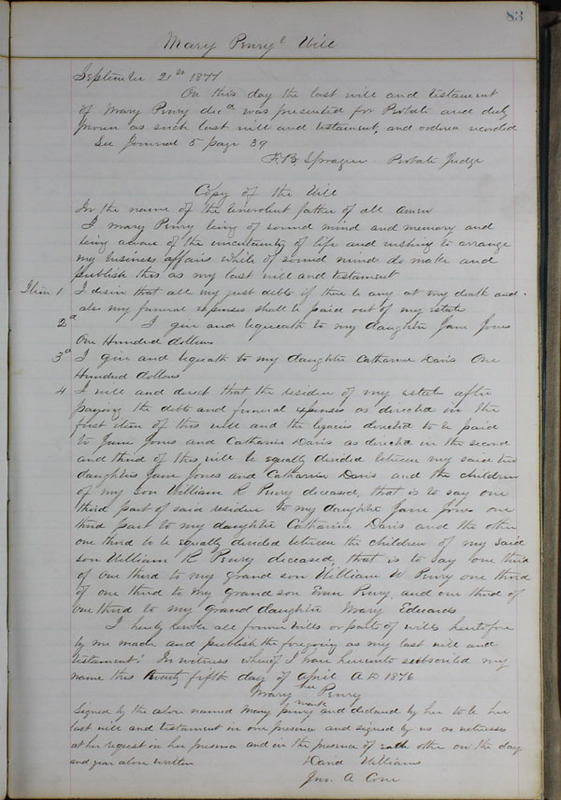 83
Mary Penry's Will
September 21st 1877
On this day the last will and testament
of Mary Penry decd was presented for Probate and duly
proven as such last will and testament, and ordered recorded
See Journal 5 page 39
F. B. Sprague Probate Judge
Copy of the Will
In the name of the benevolent father of all Amen
I Mary Penry being of sound mind and memory and
being aware of the uncertainty of life and wishing to arrange
my business affairs while of sound mind do make and
publish this as my last will and testament
Item 1 I desire that all my just debts if there be any at my death and
also my funeral expenses shall be paid out of my estate
2d I give and bequeath to my daughter Jane Jones
One Hundred dollars
3d I give and bequath to my daughter Catharine Davis One
Hundred dollars
4 I will and direct that the residue of my estate after
paying the debts and funeral expenses as directed in the
first item of this will and the legacies directed to be paid
to Jane Jones and Catharine Davis as directed in the second
and third of this will be equally divided between my said two
daughters Jane Jones and Catharine Davis and the children
of my son William R Penry deceased, that is to say one
third part of said residue to my daughter Jane Jones one
third part to my daughter Catharine Davis and the other
one third to be equally divided between the children of my said
son William R Penry deceased, that is to say one third
of one third to my grand son William W Penry one third
of one third to my grandson Evan Penry, and one third of
one third to my grand daughter Mary Edwards
I hereby revoke all former wills or parts of wills heretofore
by me made and publish the foregoing as my last will and
testament. In witness whereof I have hereunto subscribed my
name this twenty fifth day of April A D 1876
Mary her mark Penry
Signed by the above named Mary Penry and declared by her to be her
last will and testament in our presence and signed by us as witnesses
at her request in her presence and in the presence of each other on the day
and year above written David Williams
Jno. A Cone